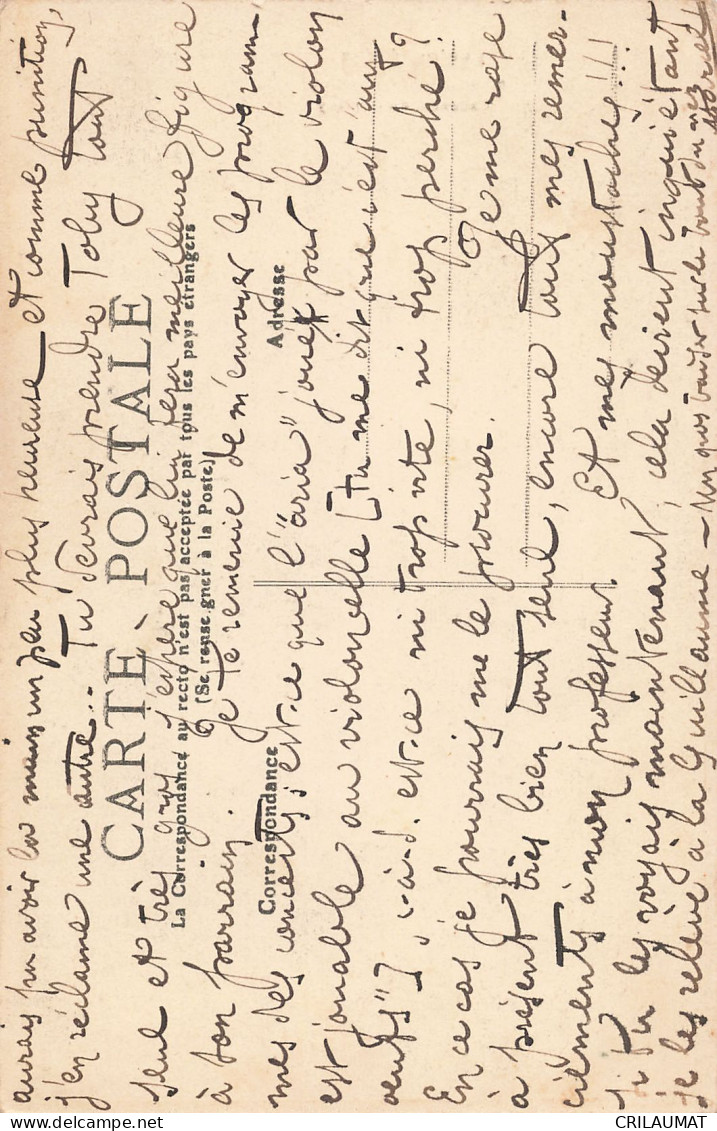 aurais pu avoir la main un peu plus heureuse et comme punition,
j'en réclame une autre... Tu devrais prendre Toby tout
CARTE POSTALE
seul et très gros j'espère que lui fera meilleure figure
La Correspondance au recto n'est pas acceptée par tous les pays étrangers
(Se renseigner à la Poste)
à ton parrain. Je te remercie de m'envoyer les program-
Correspondance
Adresse
mes des concerts; est-ce que l'"aria" jouée par le violon
est jouable au violoncelle [tu me dis que c'est "aux
vents"] c-à-d. est-ce ni trop vite, ni trop perché?
En ce cas je pourrais me le procurer. Je me rase
à présent très bien tout seul, encore tous mes remer-
ciements à mon professeur. Et mes moustaches!!!...
si tu les voyais maintenant, cela devient inquiétant
je les relève à la Guillaume - Un gros baiser sur le bout du nez
CRILAUMAT